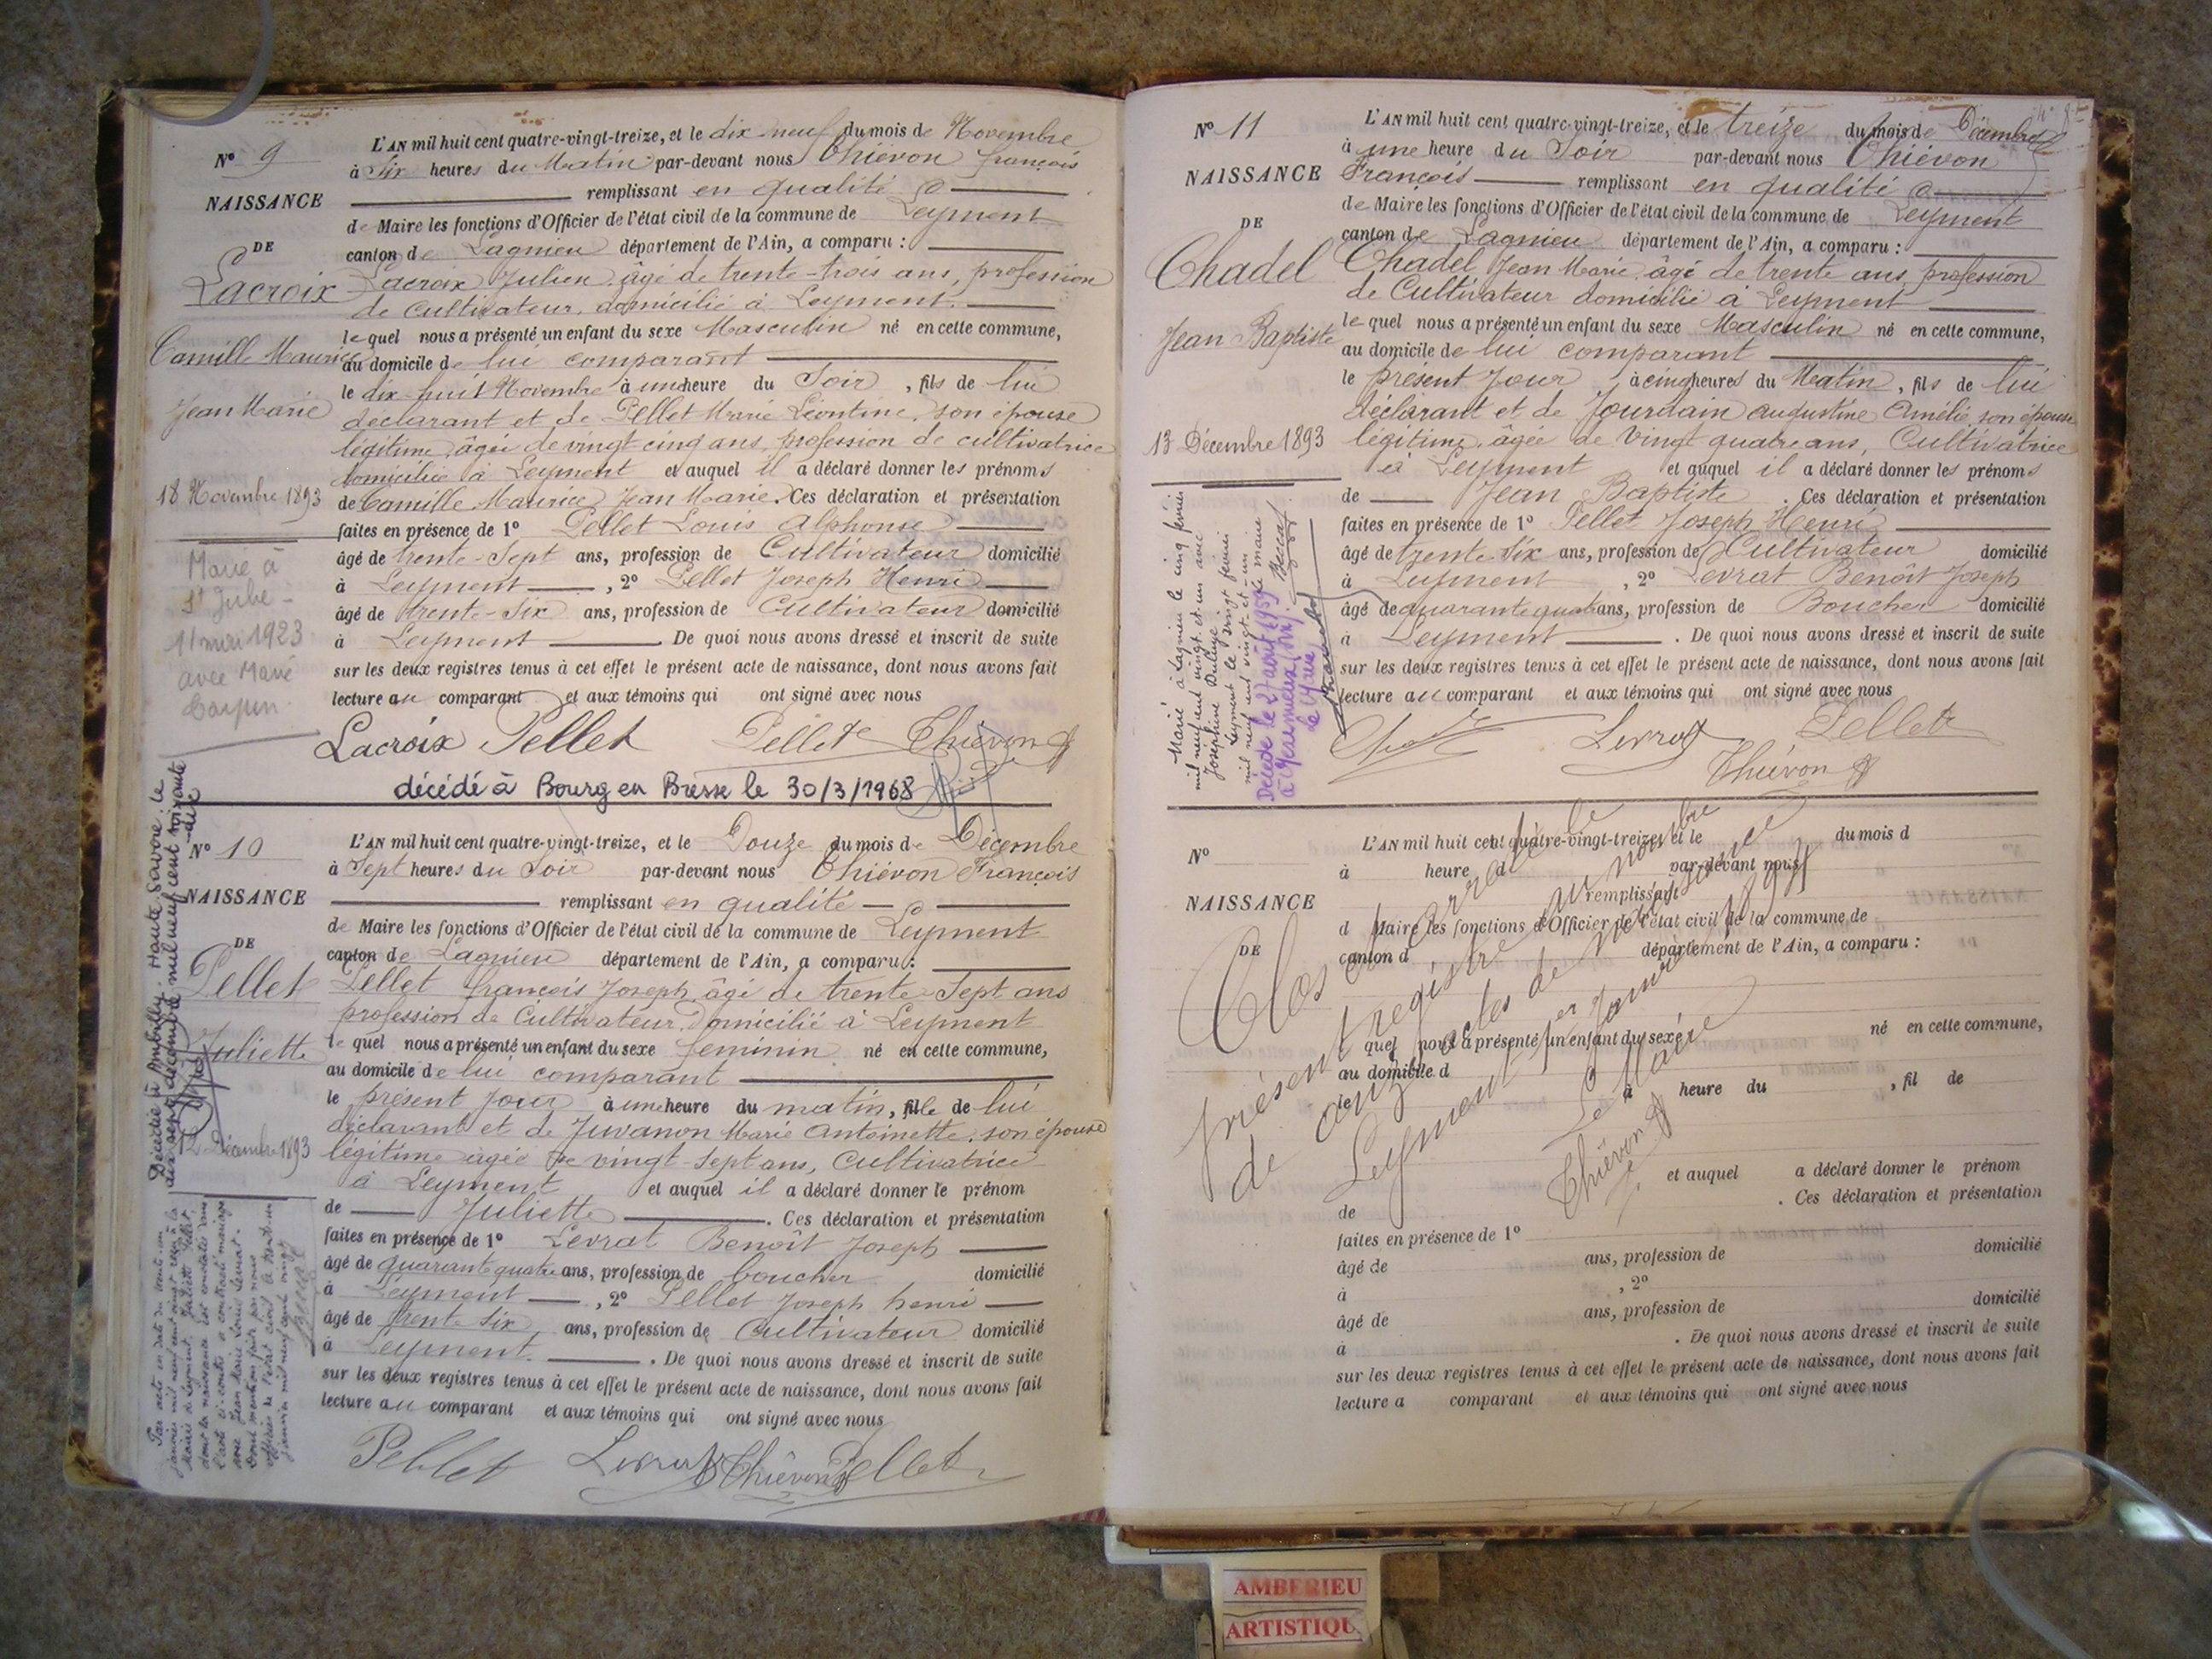 N° 9
NAISSANCE
DE
Lacroix
Camille Maurice
Jean Marie
18 Novembre 1893
Marié à
St Jube
11 mai 1923
avec Marie
L'AN mil huit cent quatre-vingt-treize, et le dix-neuf du mois de Novembre
à Six heures du Matin par-devant nous Thiévon François
remplissant en qualité
de Maire les fonctions d'Officier de l'état civil de la commune de Leyment
canton de Lagnieu département de l'Ain, a comparu :
Lacroix Julien âgé de trente-trois ans, profession
de Cultivateur, domicilié à Leyment.
lequel nous a présenté un enfant du sexe Masculin né en cette commune,
au domicile de lui comparant
le dix-huit Novembre à une heure du Soir, fils de lui
déclarant et de Pellet Marie Léontine, son épouse
légitime, âgée de vingt cinq ans, profession de cultivatrice
domiciliée à Leyment et auquel il a déclaré donner les prénoms
de Camille Maurice Jean Marie. Ces déclaration et présentation
faites en présence de 1° Pellet Louis Alphonse
âgé de trente-Sept ans, profession de Cultivateur domicilié
à Leyment, 2° Pellet Joseph Henri
âgé de trente-Six ans, profession de Cultivateur domicilié
à Leyment De quoi nous avons dressé et inscrit de suite
sur les deux registres tenus à cet effet le présent acte de naissance, dont nous avons fait
lecture au comparant et aux témoins qui ont signé avec nous
Lacroix Pellet Pellet Thiévon
décédé à Bourg en Bresse le 30/3/1968
N° 10
NAISSANCE
DE
Pellet
Juliette
12 Décembre 1893
Décédée à Ambilly. Haute Savoie. le
dix sept décembre mil neuf cent soixante
-dix
Par acte en date du vingt-un
janvier mil neuf cent vingt reçu à la
Mairie de Leyment, Juliette Pellet
dont la naissance est constatée dans
l'acte ci-contre a contracté mariage
avec Jean Marie Louis Levrat.
Dont mention faite par nous
officier de l'état civil
janvier mil neuf cent vingt
L'AN mil huit cent quatre-vingt-treize, et le Douze du mois de Décembre
à Sept heures du Soir par-devant nous Thiévon François
remplissant en qualité
de Maire les fonctions d'Officier de l'état civil de la commune de Leyment
canton de Lagnieu département de l'Ain, a comparu :
Pellet François Joseph, âgé de trente-Sept ans
profession de Cultivateur, domicilié à Leyment
lequel nous a présenté un enfant du sexe féminin né en cette commune,
au domicile de lui comparant
le présent jour à une heure du matin, fille de lui
déclarant et de Juvanon Marie Antoinette, son épouse
légitime âgée de vingt-Sept ans, Cultivatrice
à Leyment et auquel il a déclaré donner le prénom
de Juliette. Ces déclaration et présentation
faites en présence de 1° Levrat Benoît Joseph
âgé de quarante quatre ans, profession de boucher domicilié
à Leyment, 2° Pellet Joseph henri
âgé de trente Six ans, profession de Cultivateur domicilié
à Leyment. De quoi nous avons dressé et inscrit de suite
sur les deux registres tenus à cet effet le présent acte de naissance, dont nous avons fait
lecture au comparant et aux témoins qui ont signé avec nous
Pellet Levrat Thiévon Pellet
N° 11
NAISSANCE
DE
Chadel
Jean Baptiste
13 Décembre 1893
Marié à Lagnieu le cinq février
mil neuf cent vingt et un avec
Joséphine
Leyment le vingt février
mil neuf cent vingt-et-un
Décédé le 27 août 1959
le Maire
L'AN mil huit cent quatre-vingt-treize, et le treize du mois de Décembre
à une heure du Soir par-devant nous Thiévon
François remplissant en qualité
de Maire les fonctions d'Officier de l'état civil de la commune de Leyment
canton de Lagnieu département de l'Ain, a comparu :
Chadel Jean Marie, âgé de trente ans, profession
de Cultivateur domicilié à Leyment
lequel nous a présenté un enfant du sexe Masculin né en cette commune,
au domicile de lui comparant
le présent Jour à cinq heures du Matin, fils de lui
déclarant et de Jourdain Augustine Amélie, son épouse
légitime, âgée de Vingt quatre ans, Cultivatrice
à Leyment et auquel il a déclaré donner les prénoms
de Jean Baptiste. Ces déclaration et présentation
faites en présence de 1° Pellet Joseph Henri
âgé de trente Six ans, profession de Cultivateur domicilié
à Leyment, 2° Levrat Benoît Joseph
âgé de quarante quatre ans, profession de Boucher domicilié
à Leyment. De quoi nous avons dressé et inscrit de suite
sur les deux registres tenus à cet effet le présent acte de naissance, dont nous avons fait
lecture au comparant et aux témoins qui ont signé avec nous
Levrat Pellet
Thiévon
N°
NAISSANCE
DE
L'AN mil huit cent quatre-vingt-treize, et le du mois d
à heure d par-devant nous
remplissant
d Maire les fonctions d'Officier de l'état civil de la commune de
canton d département de l'Ain, a comparu :
quel nous a présenté un enfant du sexe né en cette commune,
au domicile d
le à heure du , fil de
et auquel a déclaré donner le prénom
de . Ces déclaration et présentation
faites en présence de 1°
âgé de ans, profession de domicilié
à , 2°
âgé de ans, profession de domicilié
à . De quoi nous avons dressé et inscrit de suite
sur les deux registres tenus à cet effet le présent acte de naissance, dont nous avons fait
lecture a comparant et aux témoins qui ont signé avec nous
Clos et arrêté le
présent registre au nombre
de onze actes de naissance
Leyment 1er Janvier 1894
Le Maire
Thiévon
AMBERIEU
ARTISTIQU